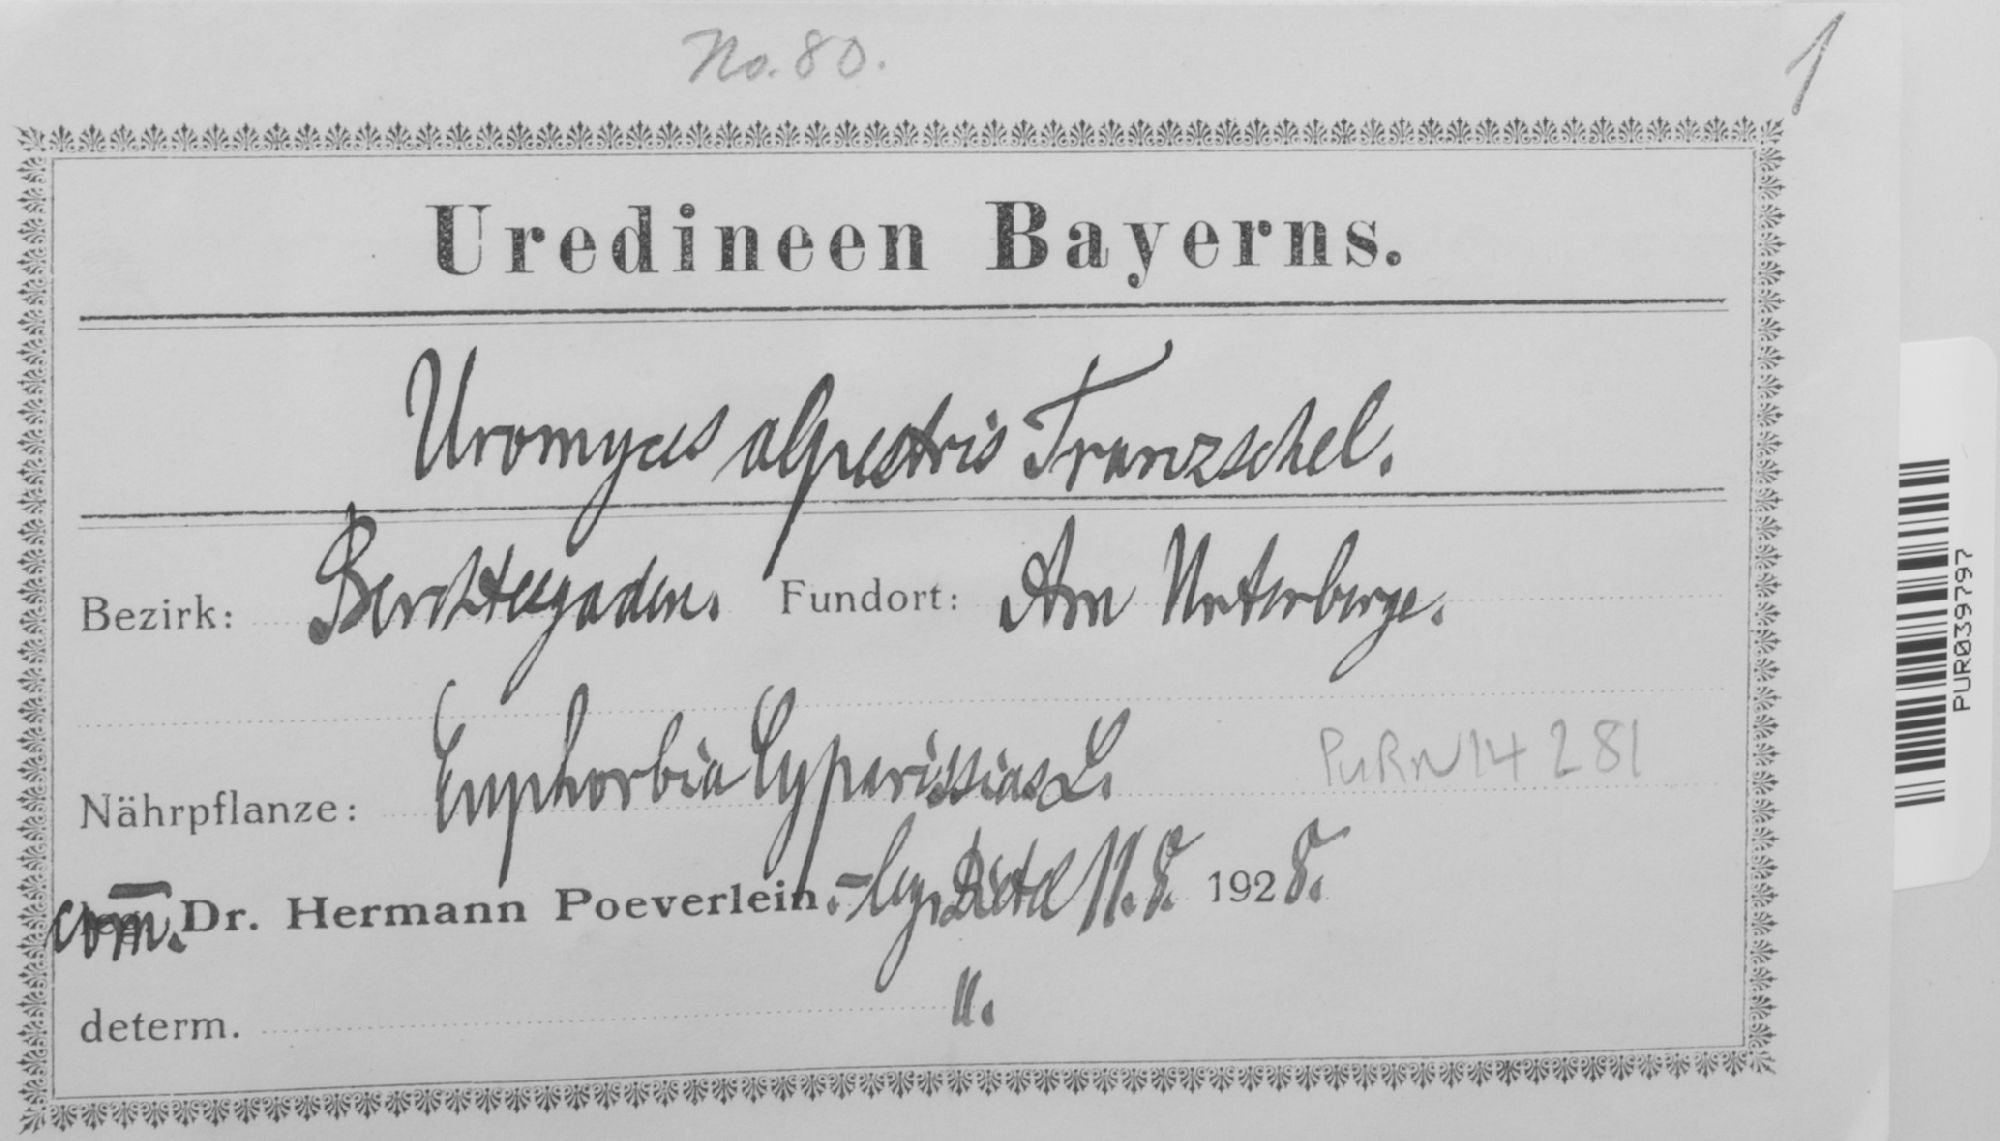 No. 80.
1
Uredineen Bayerns.
Uromyces alpestris Tranzschel.
Bezirk: Berchtesgaden. Fundort: Am Untersberge.
Nährpflanze: Euphorbia Cyparissias L.
PURN14281
com. Dr. Hermann Poeverlein. - leg. Dietel 11.8. 1928.
determ. ".
PUR039797